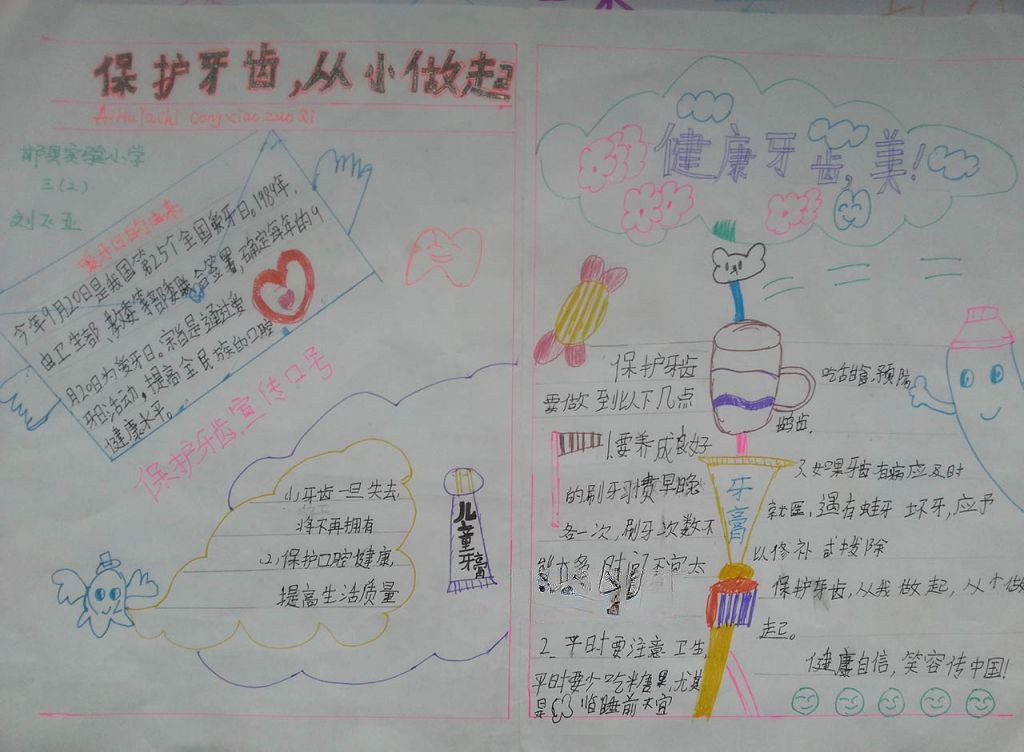 保护牙齿,从小做起
AiHuYachi congxiao zuo Qi
实验小学
三(2)
刘飞亚
爱牙日的由来
今年9月20日是我国第25个全国爱牙日。1989年,
由卫生部、教委等部委联合签署,确定每年的9
月20日为爱牙日。宗旨是通过爱
牙日活动,提高全民族的口腔
健康水平。
保护牙齿宣传口号
1、牙齿一旦失去,
将不再拥有
2、保护口腔健康,
提高生活质量
儿童牙膏
健康牙齿,美!
保护牙齿
要做到以下几点
1.要养成良好
的刷牙习惯早晚
各一次,刷牙次数不
时间不宜太
2、平时要注意卫生,
平时要少吃糖果,尤其
是临睡前不宜
吃甜食.预防
龋齿.
牙膏
3、如果牙齿有病应及时
就医,遇有蛀牙坏牙,应予
以修补或拔除
保护牙齿,从我做起,从小做
起。
健康自信,笑容传中国!